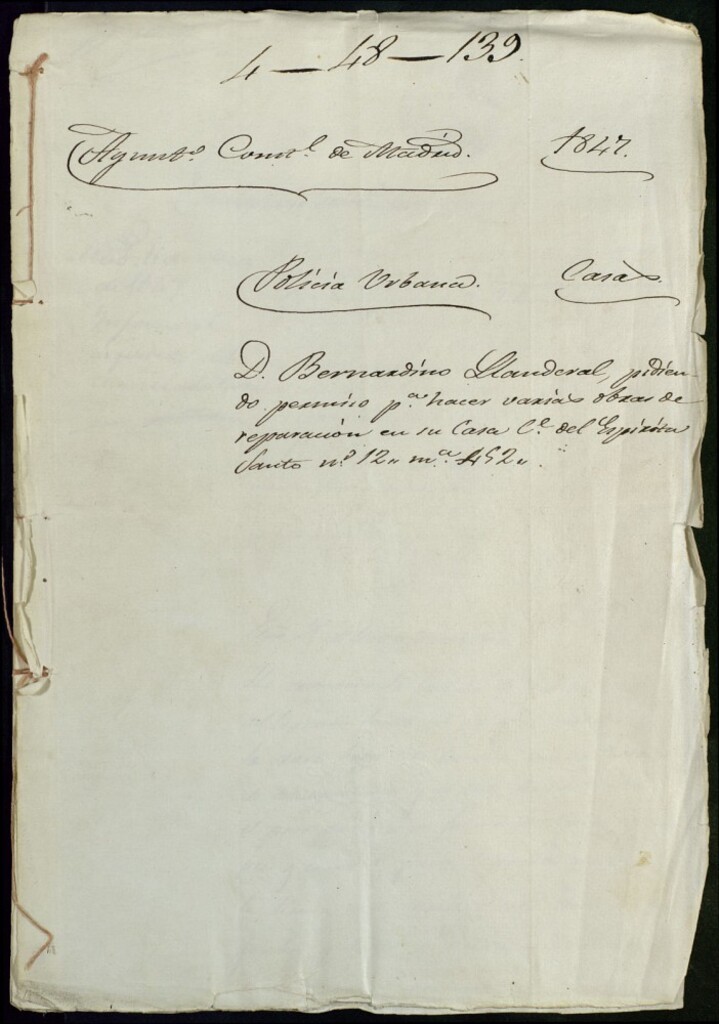 4 — 48 — 139.
Ayunt.º Const.l de Madrid. 1847.
Policia Urbana. Casas.
D. Bernardino Llanderal, pidien-
do permiso p.ª hacer varias obras de
reparacion en su Casa C.e del Espiritu
Santo n.º 12 „ m.ª 452 „.